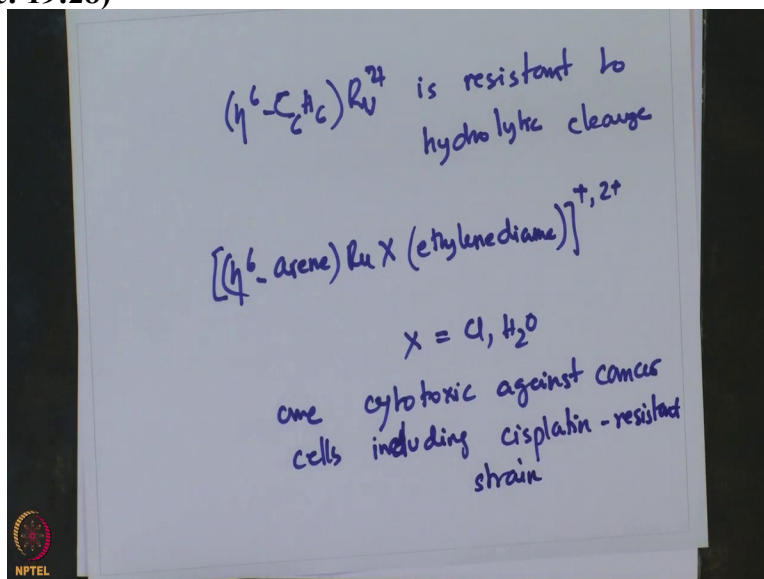 c. 19.28)
(η⁶-C₆H₆)Ru²⁺ is resistant to
hydrolytic cleavge
[(η⁶-arene) Ru X (ethylenediame)]⁺,²⁺
X = Cl, H₂O
are cytotoxic against cancer
cells including cisplatin-resistant
strain
NPTEL